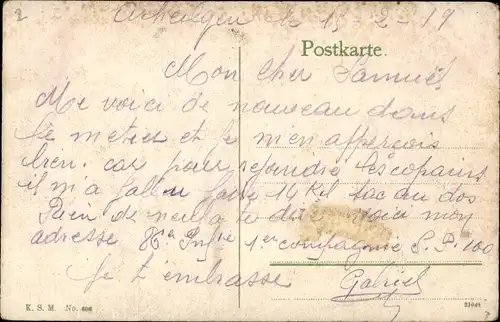 le 15-2-19
Postkarte.
Mon cher Samuel
Me voici de nouveau dans
le metier et je m'en apperçois
bien. car pour rejoindre les copains
il m'a fallu faire 14 Kil sac au dos
Rien de a te dire voici mon
adresse 86e Infrie 1er compagnie S.P. 100
Je t'embrasse
Gabriel
K. S. M. No. 608